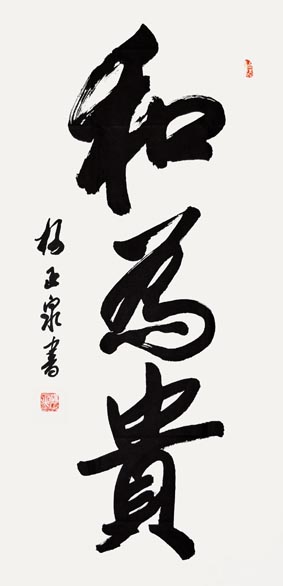 和為貴
楊正泉書